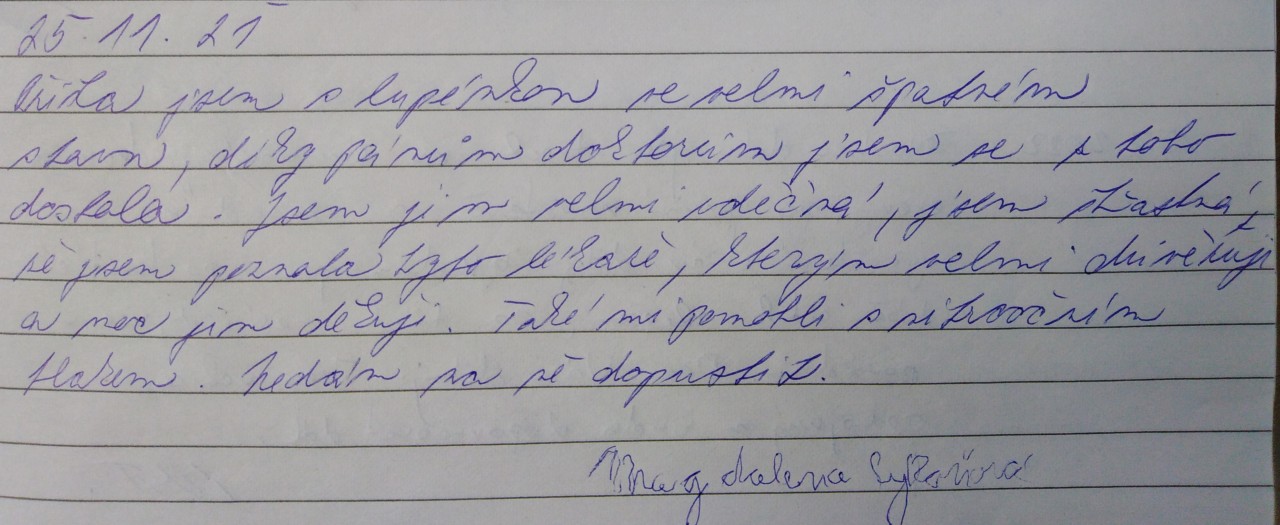 25.11.21
Přišla jsem s lupénkou ve velmi špatném
stavu, díky pánům doktorům jsem se z toho
dostala. Jsem jim velmi vděčná, jsem šťastná,
že jsem poznala tyto lékaře, kterým velmi důvěřuji
a moc jim děkuji. Také mi pomohli s nitroočním
tlakem. Nedám na ně dopustit.
Magdalena